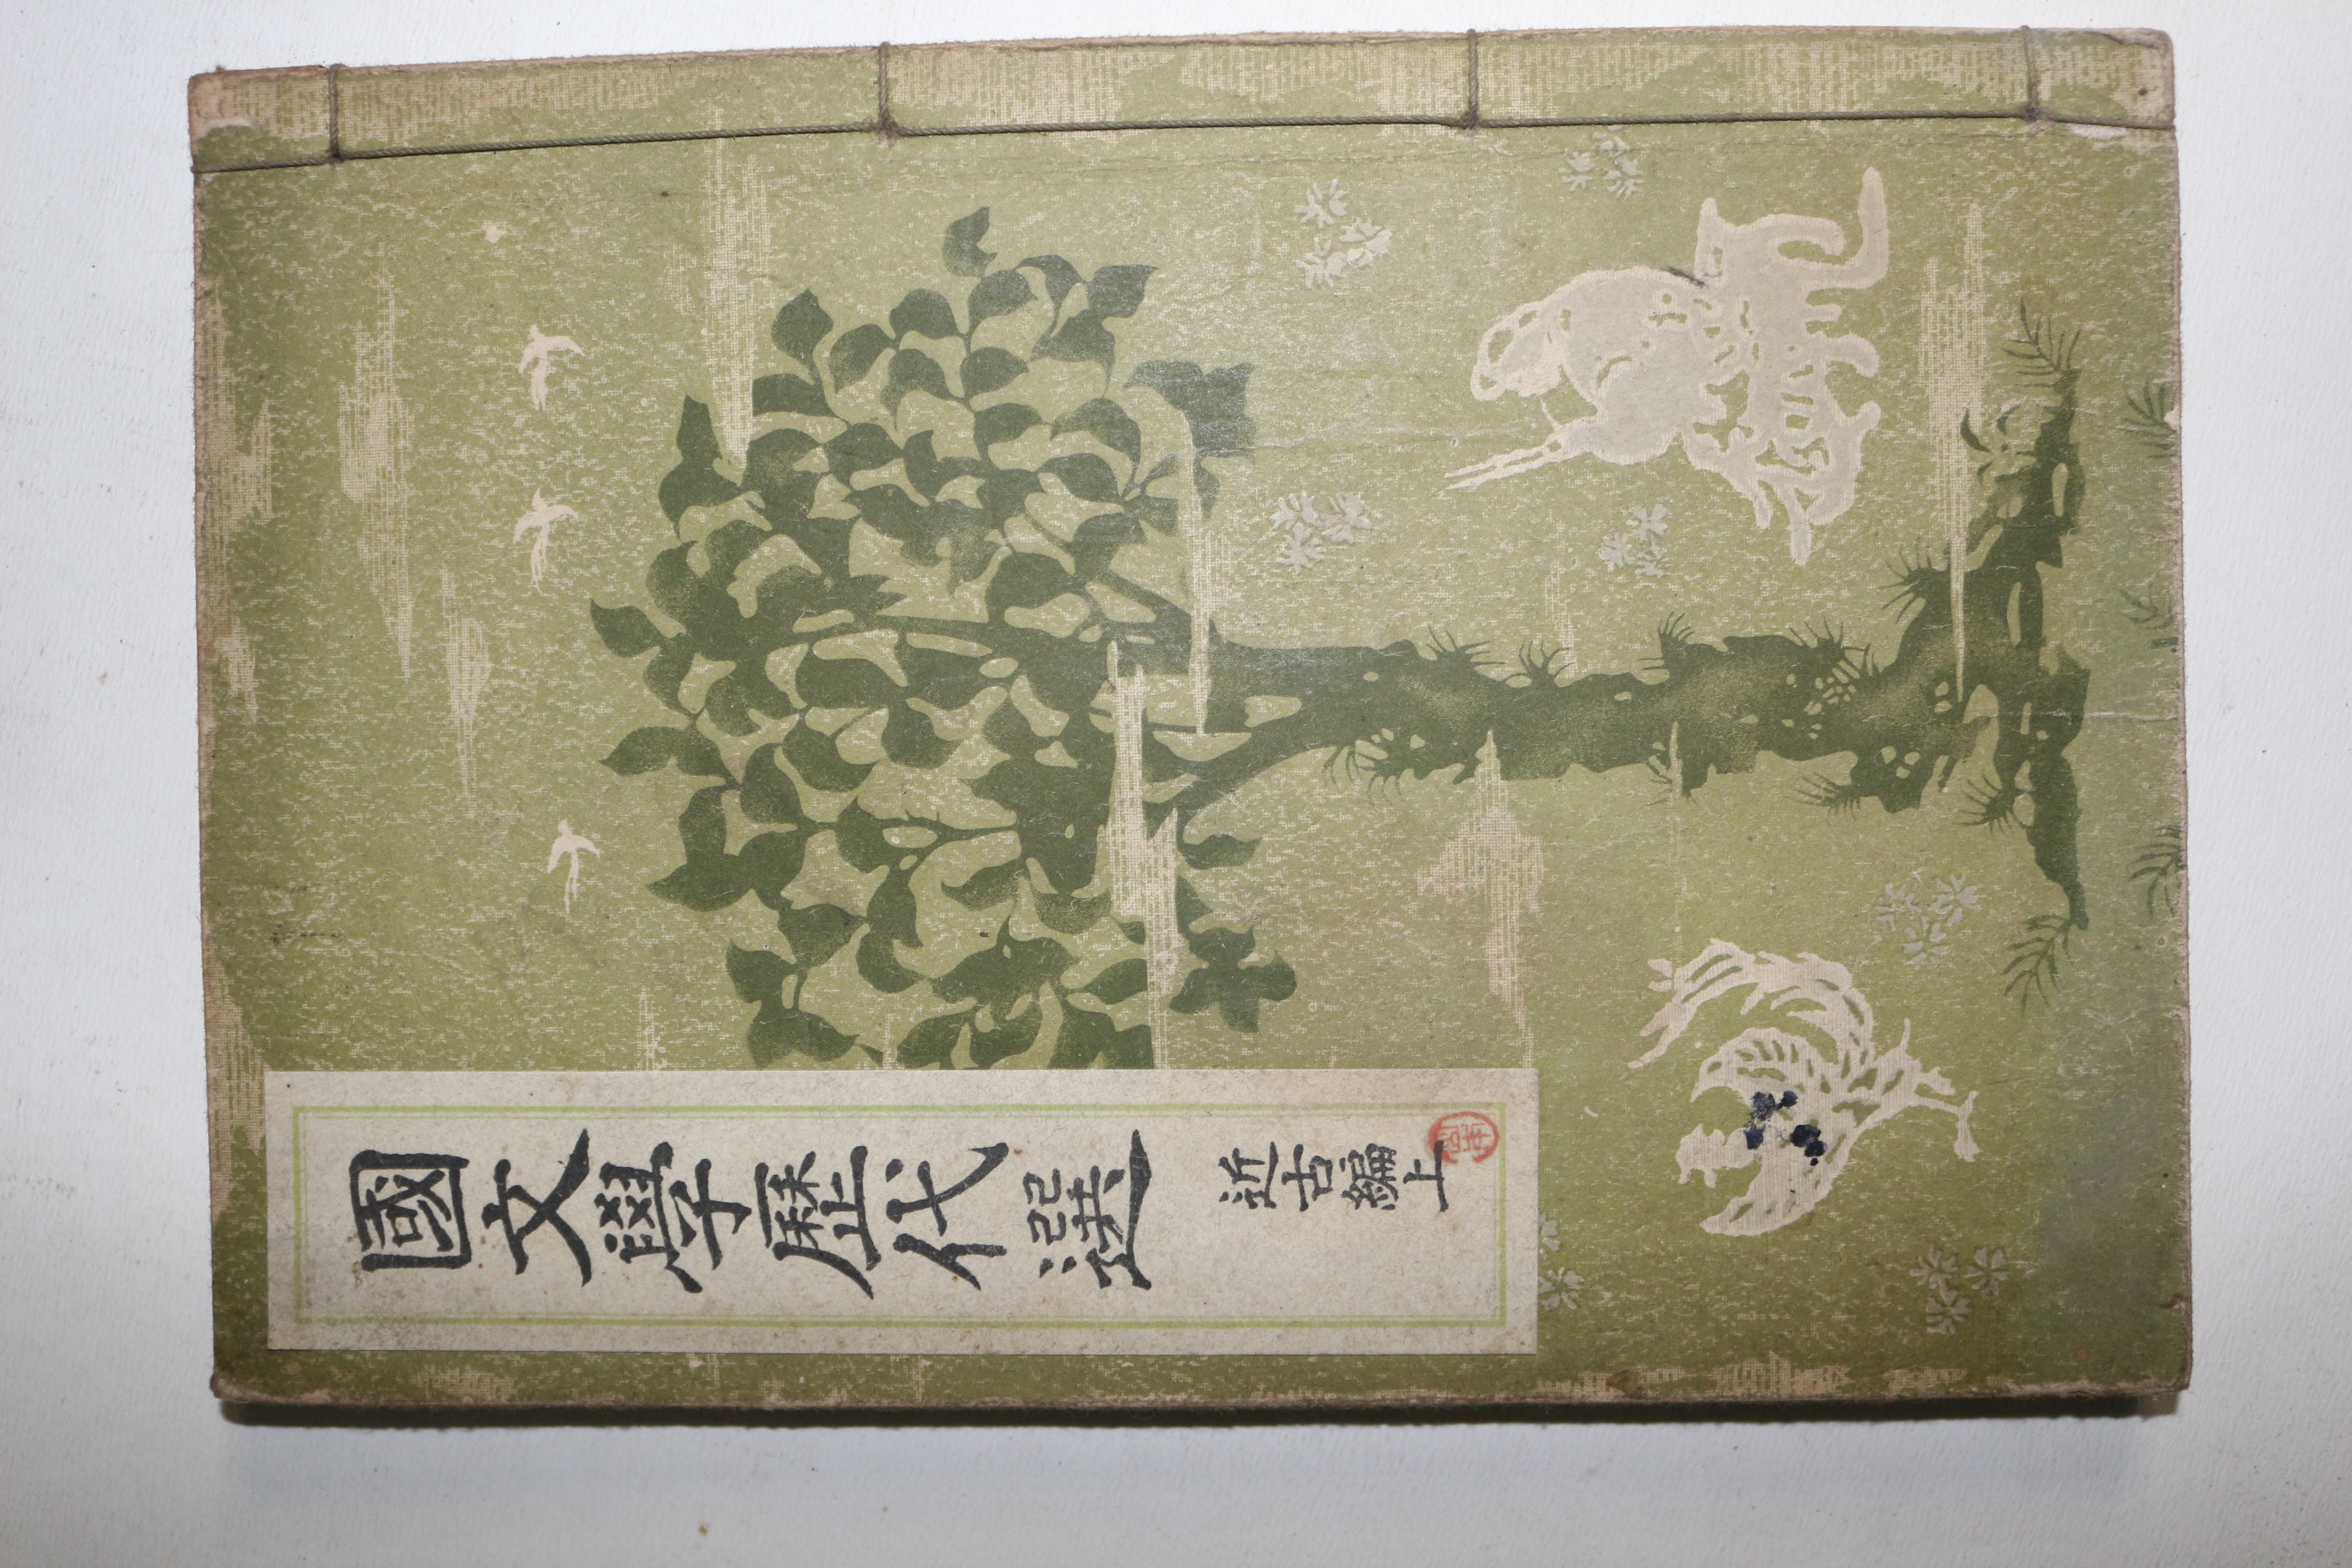 國文學歴代選
近古編上